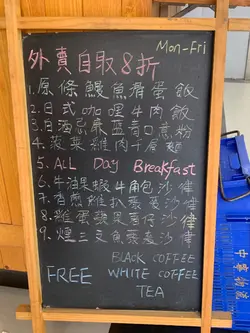 外賣自取8折
Mon-Fri
1.原條鰻魚滑蛋飯
2.日式咖哩牛肉飯
3.白酒忌廉藍青口意粉
4.菠菜雞肉千層麵
5.ALL Day Breakfast
6.牛油果蝦牛角包沙律
7.香煎雞扒菠菜沙律
8.雞蛋蘋果薯仔沙律
9.煙三文魚菠菜沙律
BLACK COFFEE
FREE WHITE COFFEE
TEA